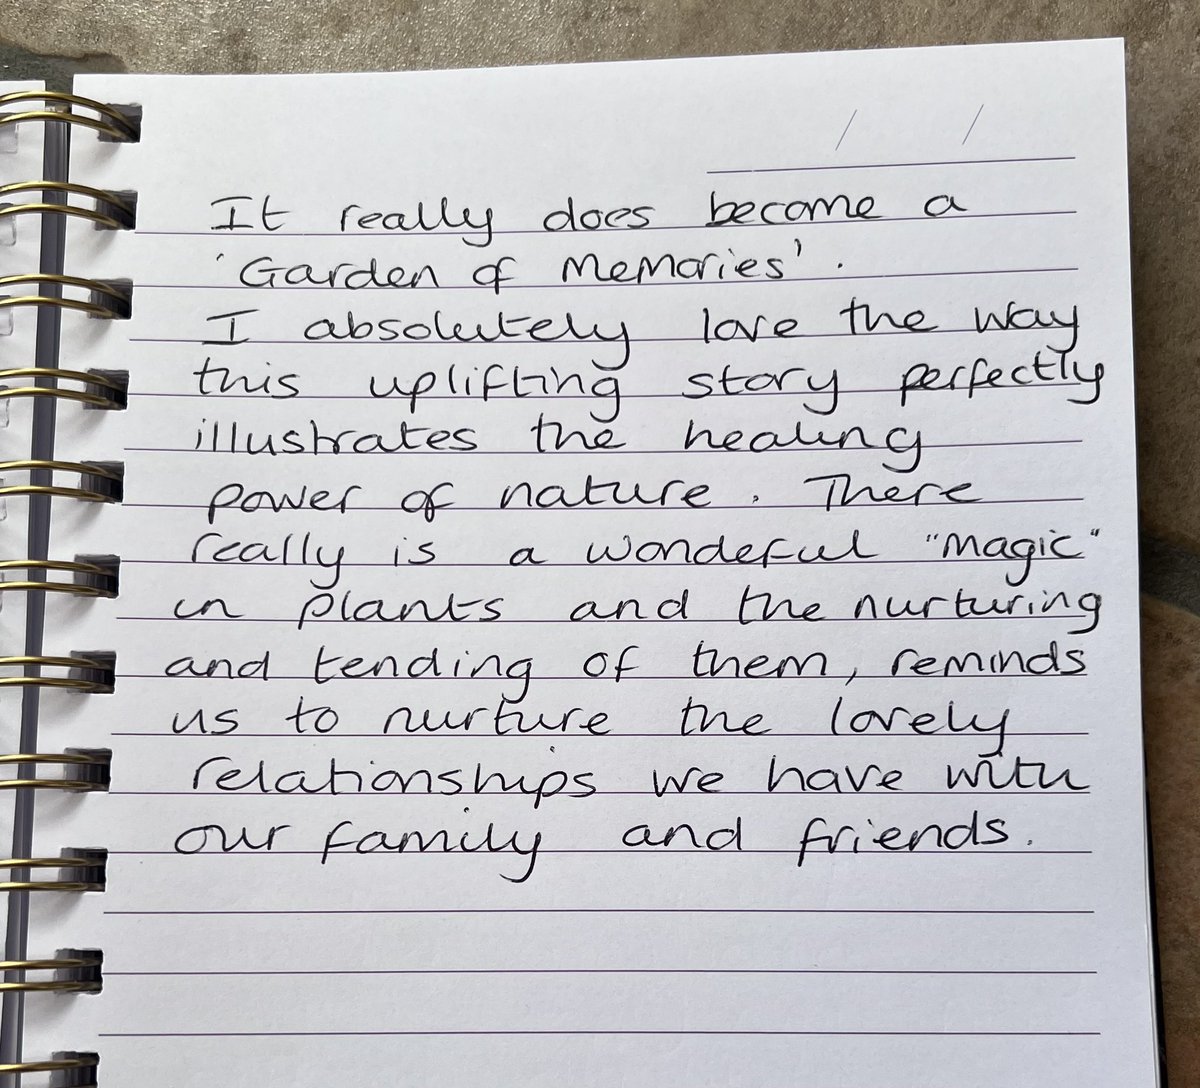 / /
It really does become a
'Garden of Memories'.
I absolutely love the way
this uplifting story perfectly
illustrates the healing
power of nature. There
really is a wondeful "magic"
in plants and the nurturing
and tending of them, reminds
us to nurture the lovely
relationships we have with
our family and friends.